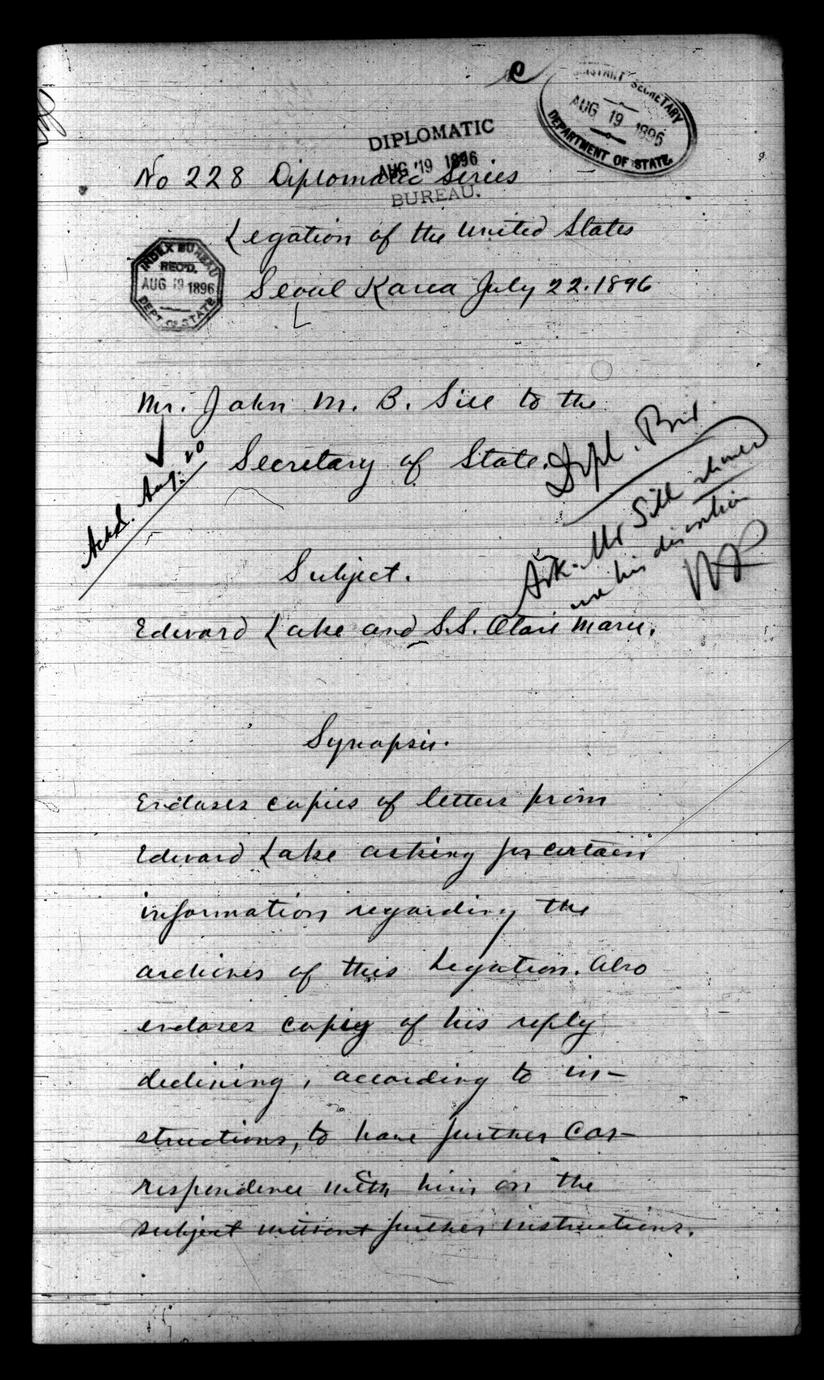 ASSISTANT SECRETARY
AUG 19 1896
DEPARTMENT OF STATE.
DIPLOMATIC
AUG 19 1896
BUREAU.
No 228 Diplomatic Series
Legation of the United States
INDEX BUREAU
REC'D.
AUG 19 1896
DEPT. OF STATE
Seoul Korea July 22. 1896
Mr. John M. B. Sill to the
Secretary of State.
Ackd. Aug. 20
Dipl. Bu.
Ack. Mr Sill
his discretion
Subject.
Edward Lake and S.S. Maru.
Synopsis.
Encloses copies of letters from
Edward Lake asking for certain
information regarding the
archives of this Legation. Also
encloses copy of his reply
declining, according to in-
structions, to have further cor-
respondence with him on the
subject without further instructions.